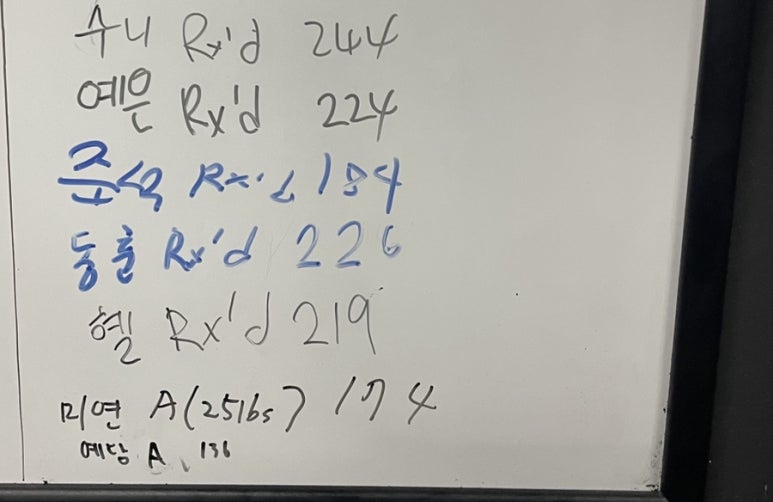 수니 Rx'd 244
예은 Rx'd 224
준석 Rx'd 184
동훈 Rx'd 226
헬 Rx'd 219
미연 A(25lbs) 174
예담 A 136